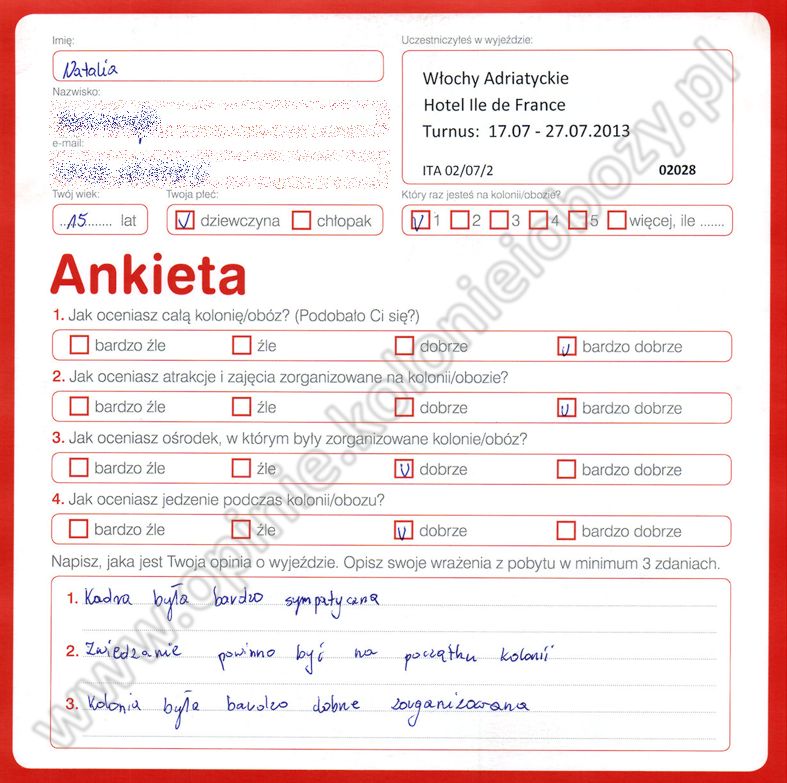 Imię:
Natalia
Nazwisko:
e-mail:
Uczestniczyłeś w wyjeździe:
Włochy Adriatyckie
Hotel Ile de France
Turnus: 17.07 - 27.07.2013
ITA 02/07/2 02028
Twój wiek: Twoja płeć: Który raz jesteś na kolonii/obozie?
..15....... lat V dziewczyna chłopak V 1 2 3 4 5 więcej, ile .......
Ankieta
1. Jak oceniasz całą kolonię/obóz? (Podobało Ci się?)
bardzo źle źle dobrze V bardzo dobrze
2. Jak oceniasz atrakcje i zajęcia zorganizowane na kolonii/obozie?
bardzo źle źle dobrze V bardzo dobrze
3. Jak oceniasz ośrodek, w którym były zorganizowane kolonie/obóz?
bardzo źle źle V dobrze bardzo dobrze
4. Jak oceniasz jedzenie podczas kolonii/obozu?
bardzo źle źle V dobrze bardzo dobrze
Napisz, jaka jest Twoja opinia o wyjeździe. Opisz swoje wrażenia z pobytu w minimum 3 zdaniach.
1. Kadra była bardzo sympatyczna
2. Zwiedzanie powinno być na początku kolonii
3. Kolonia była bardzo dobrze zorganizowana
www.opinie.kolonieiobozy.pl